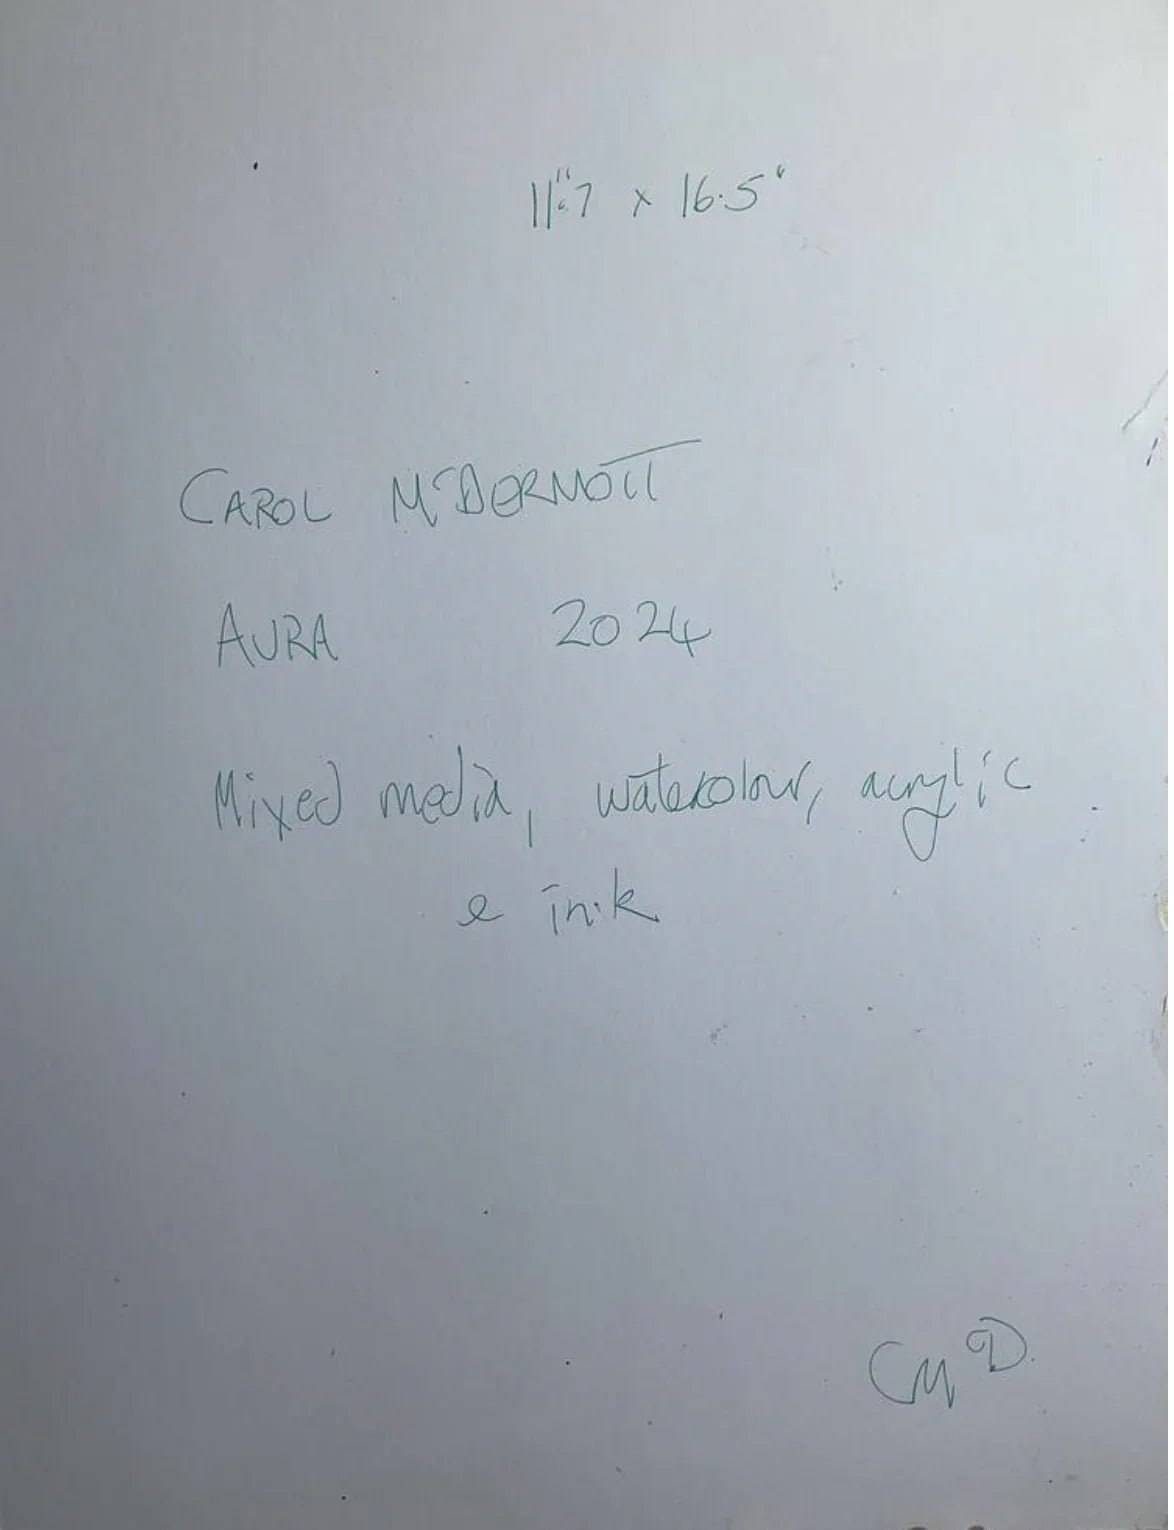 11".7 x 16.5"
CAROL McDERMOTT
AURA 2024
Mixed media, watercolour, acrylic
e ink
CMD.